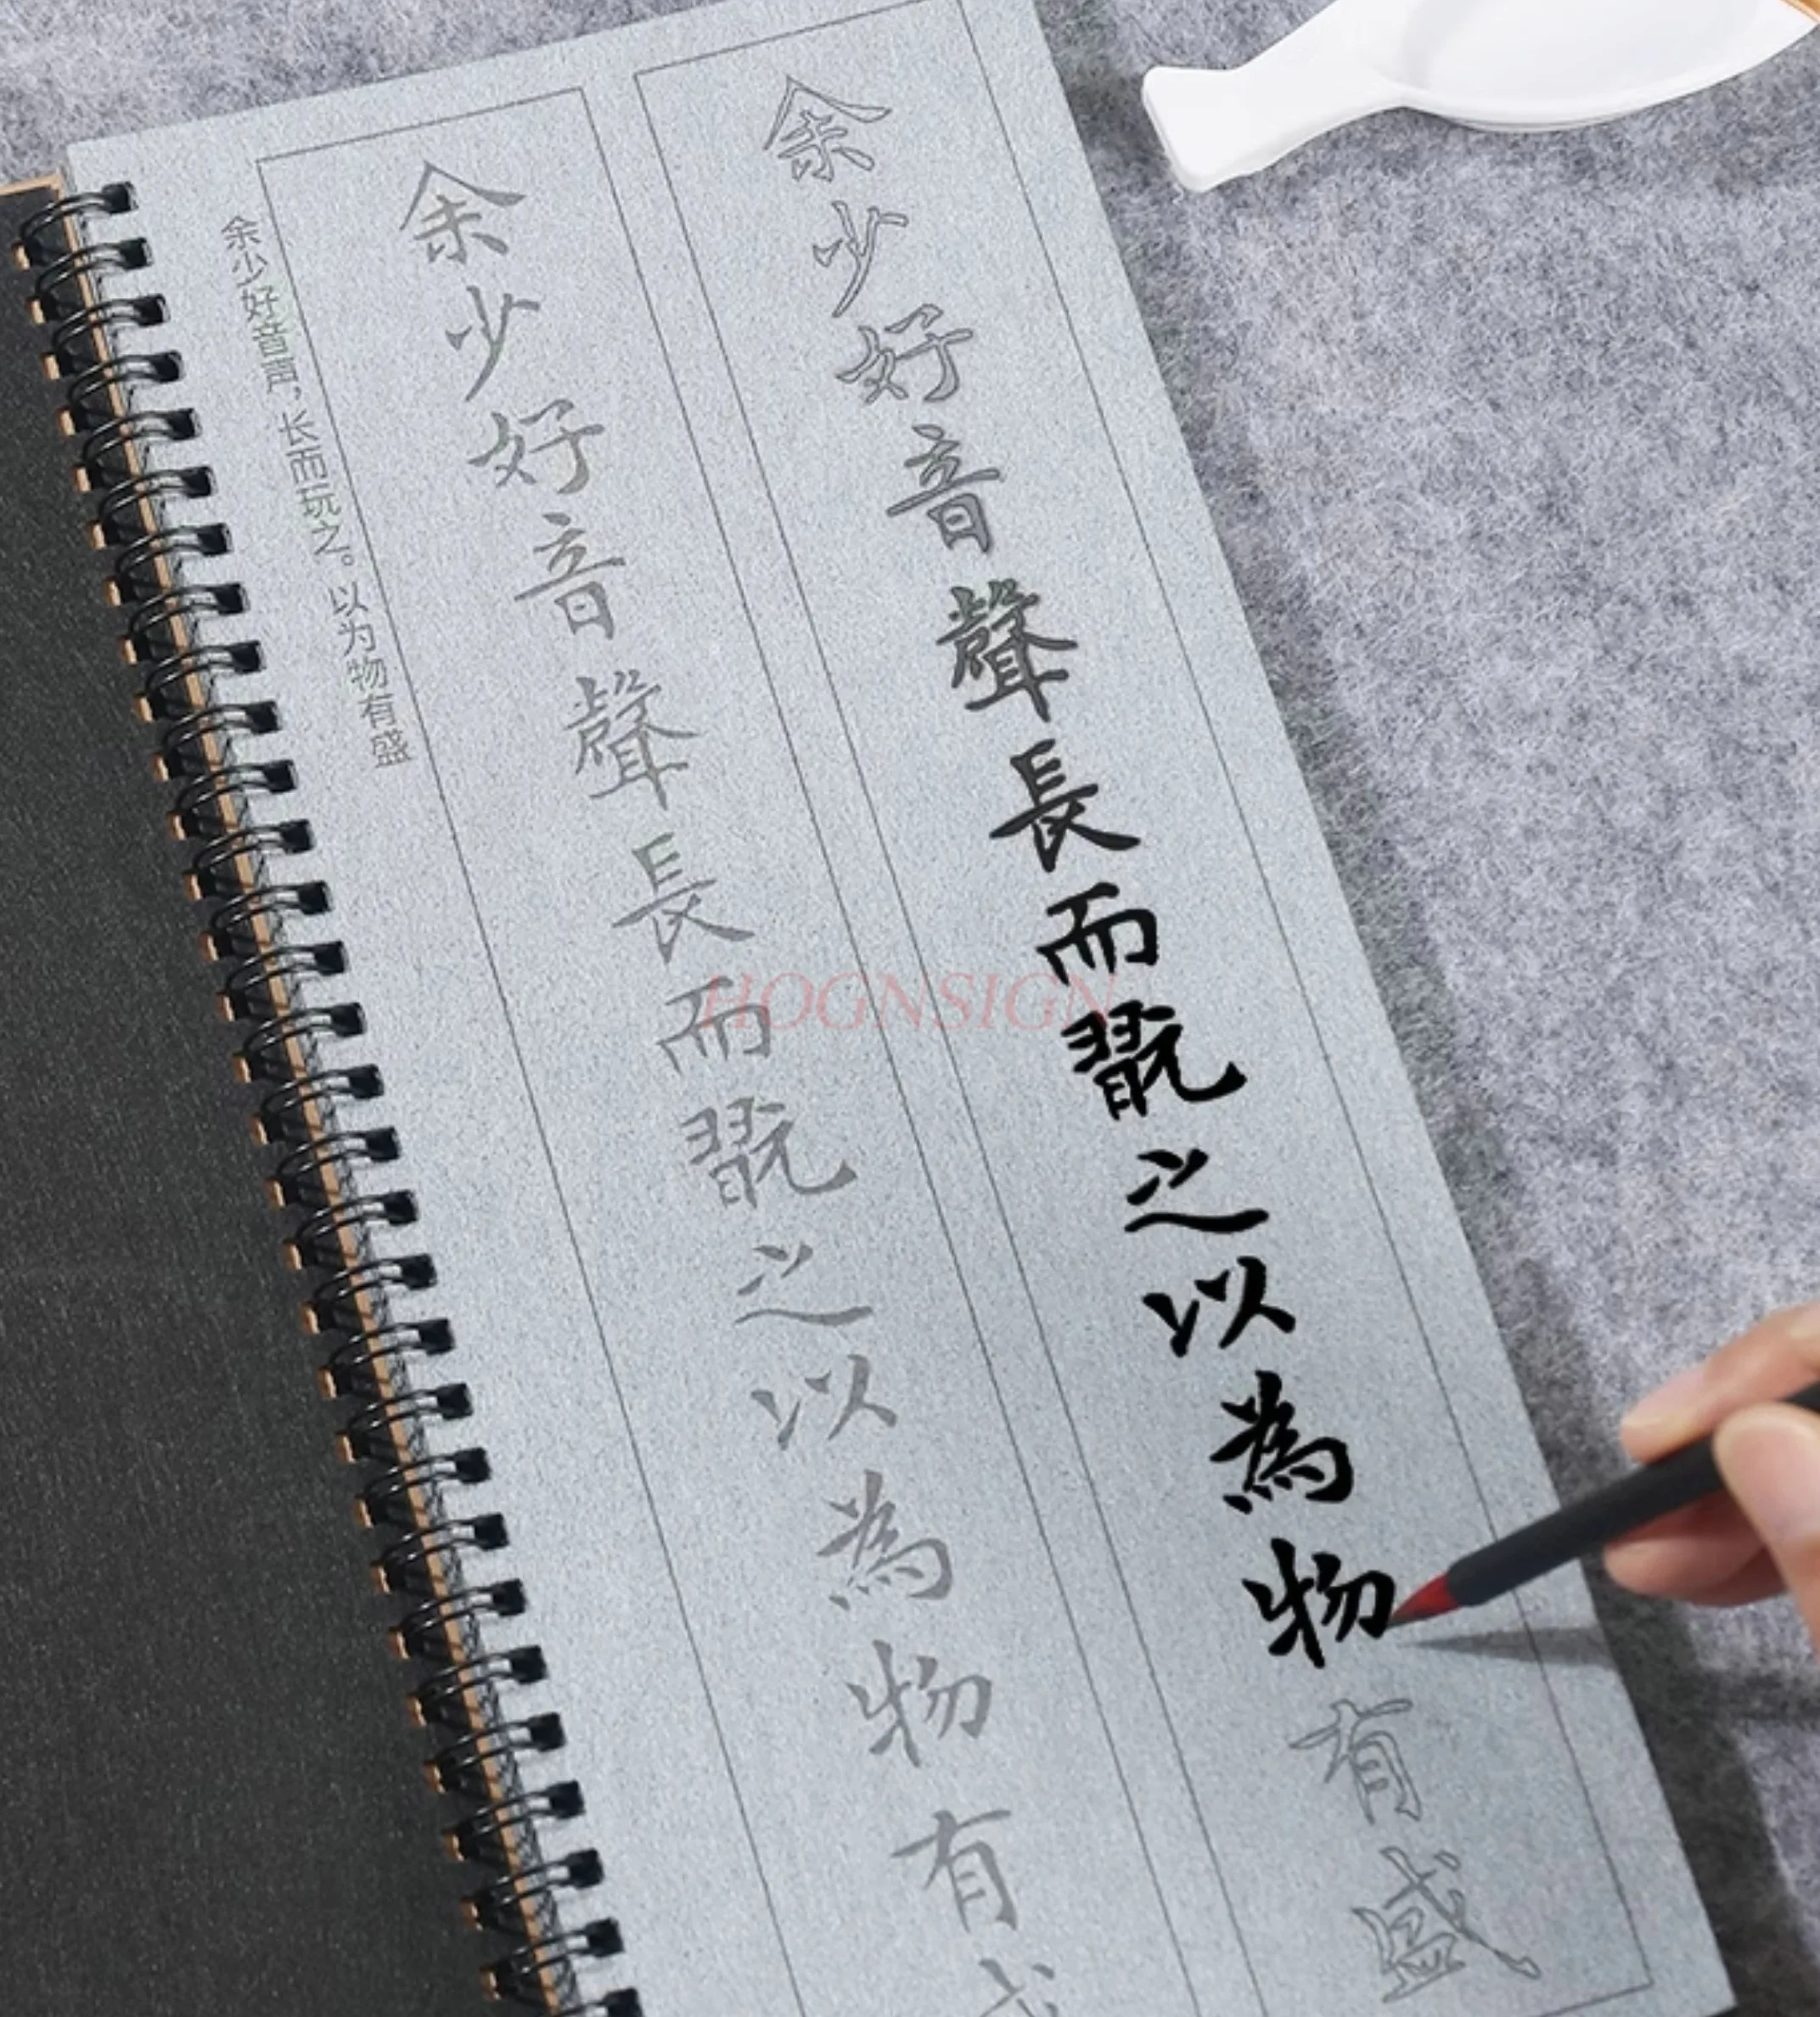 余少好音聲長而翫之以為物有盛
余少好音聲長而翫之以為物有
余少好音声，长而玩之。以为物有盛
HOGNSIGN